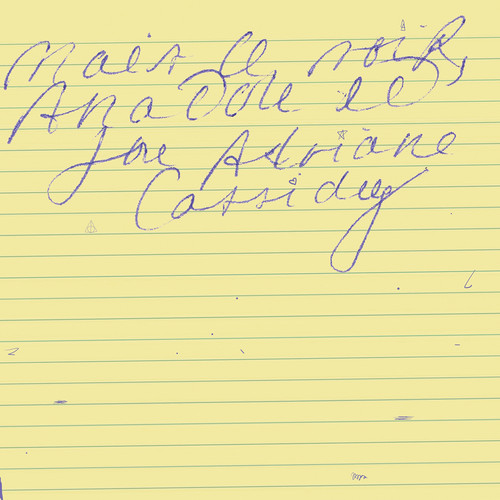 Mais le soir,
Anatole et
Joe Adriane
Cassidey